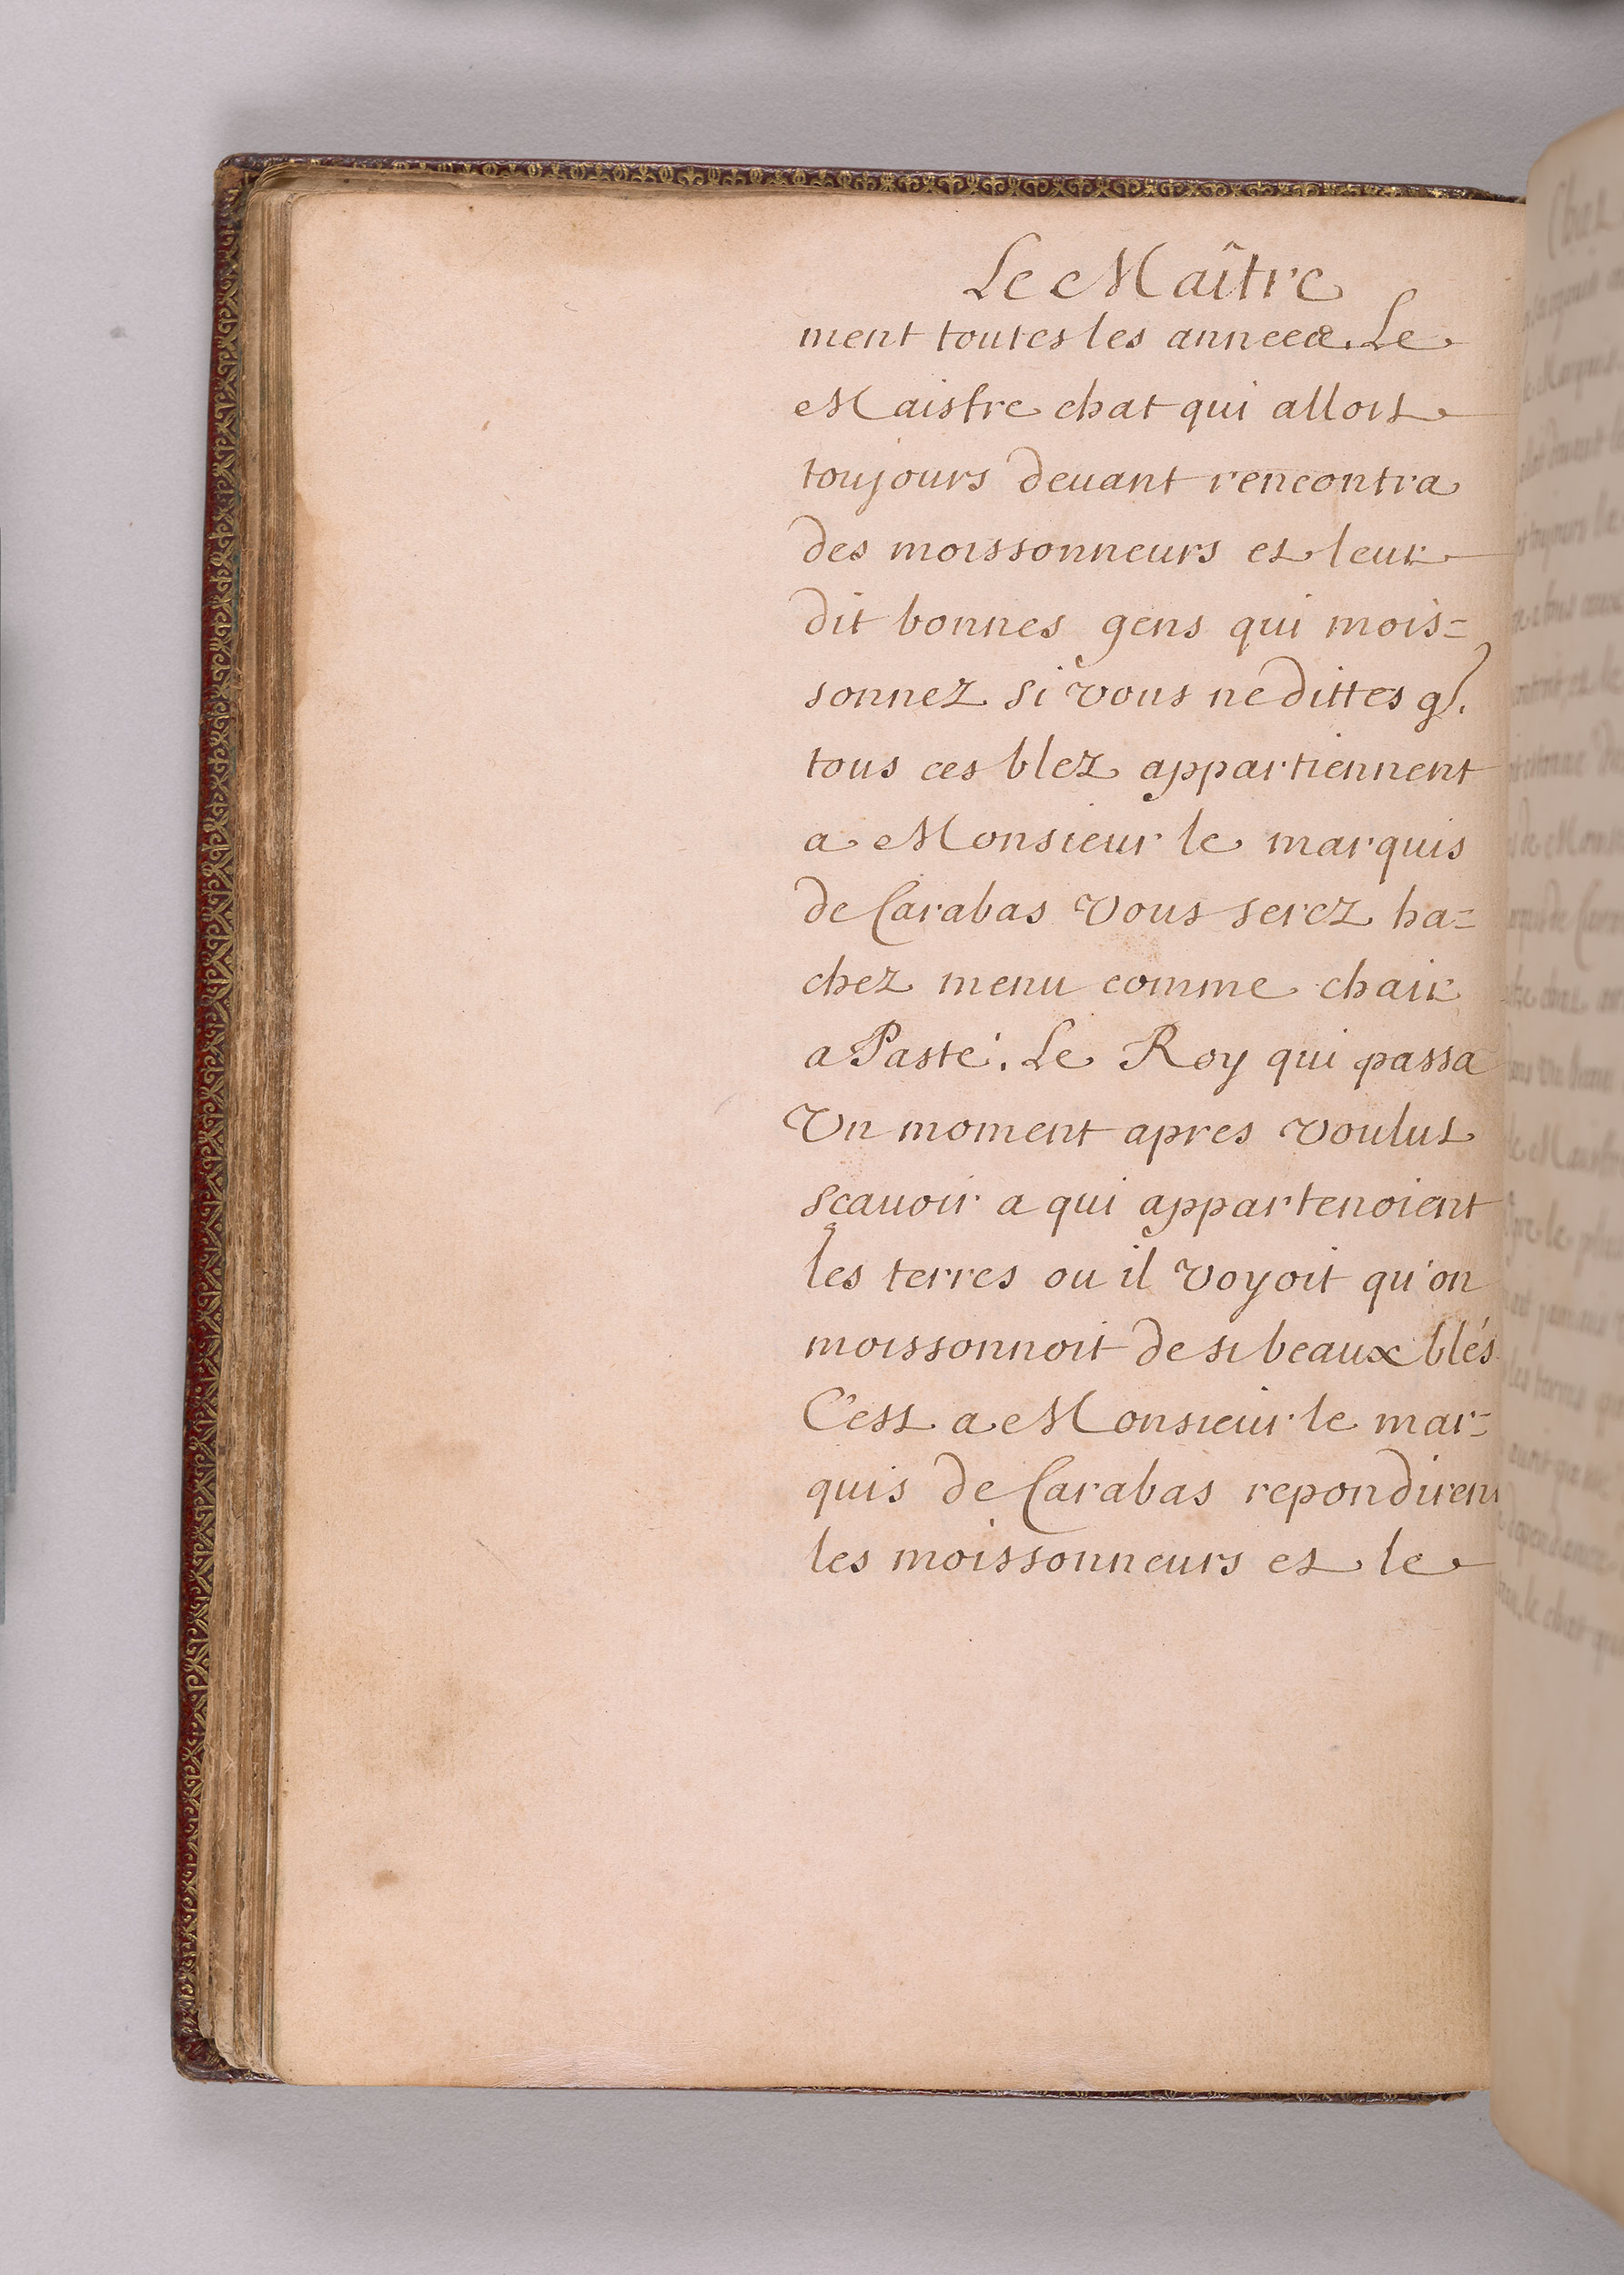 Le Maître
ment toutes les années. Le
Maistre chat qui alloit
toujours deuant rencontra
des moissonneurs et leur
dit bonnes gens qui mois=
sonnez si vous ne dittes q.
tous ces blez appartiennent
a Monsieur le marquis
de Carabas vous serez ha=
chez menu comme chair
a Pasté. Le Roy qui passa
Un moment apres voulut
sçauoir a qui appartenoient
les terres ou il voyoit qu'on
moissonnoit de si beaux blés
C'est a Monsieur le mar=
quis de Carabas repondirent
les moissonneurs et le